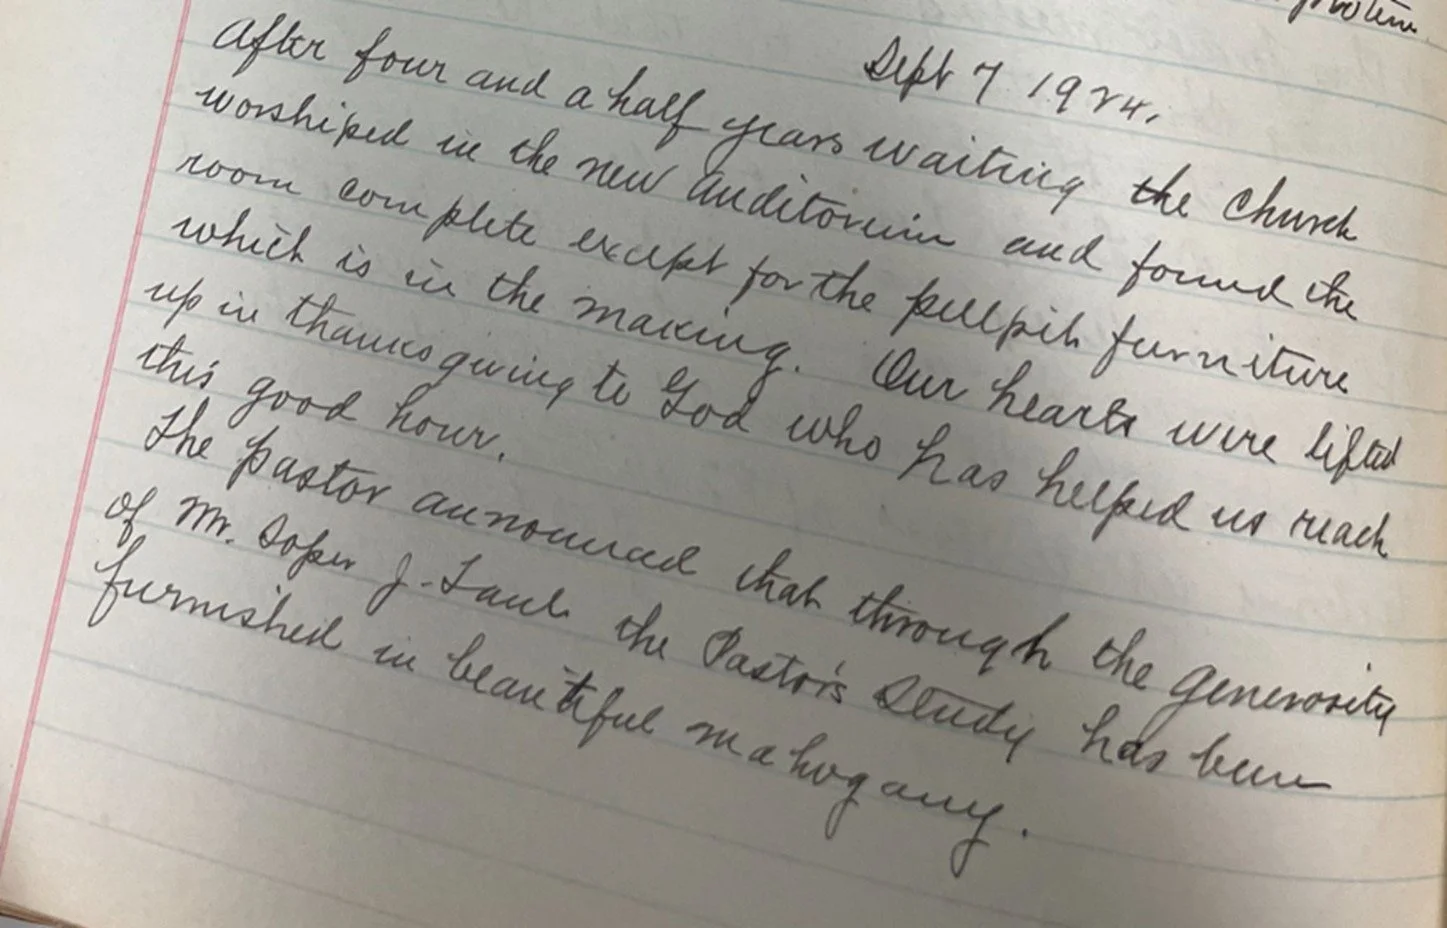 Sept 7 1924.
After four and a half years waiting the church
worshiped in the new auditorium and found the
room complete except for the pulpit furniture
which is in the making. Our hearts were lifted
up in thanksgiving to God who has helped us reach
this good hour.
The pastor announced that through the generosity
of Mr. Soper J. the Pastor's Study has been
furnished in beautiful mahogany.